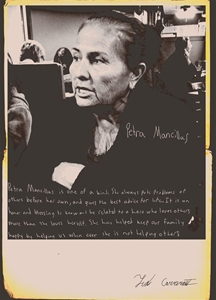 Petra Mancillas
Petra Mancillas is one of a kind. She always puts problems of
others before her own, and gives the best advice for life. It is an
honor and blessing to know and be related to a hero who loves others
more than she loves herself. She has helped keep our family
happy by helping us when ever she is not helping others.